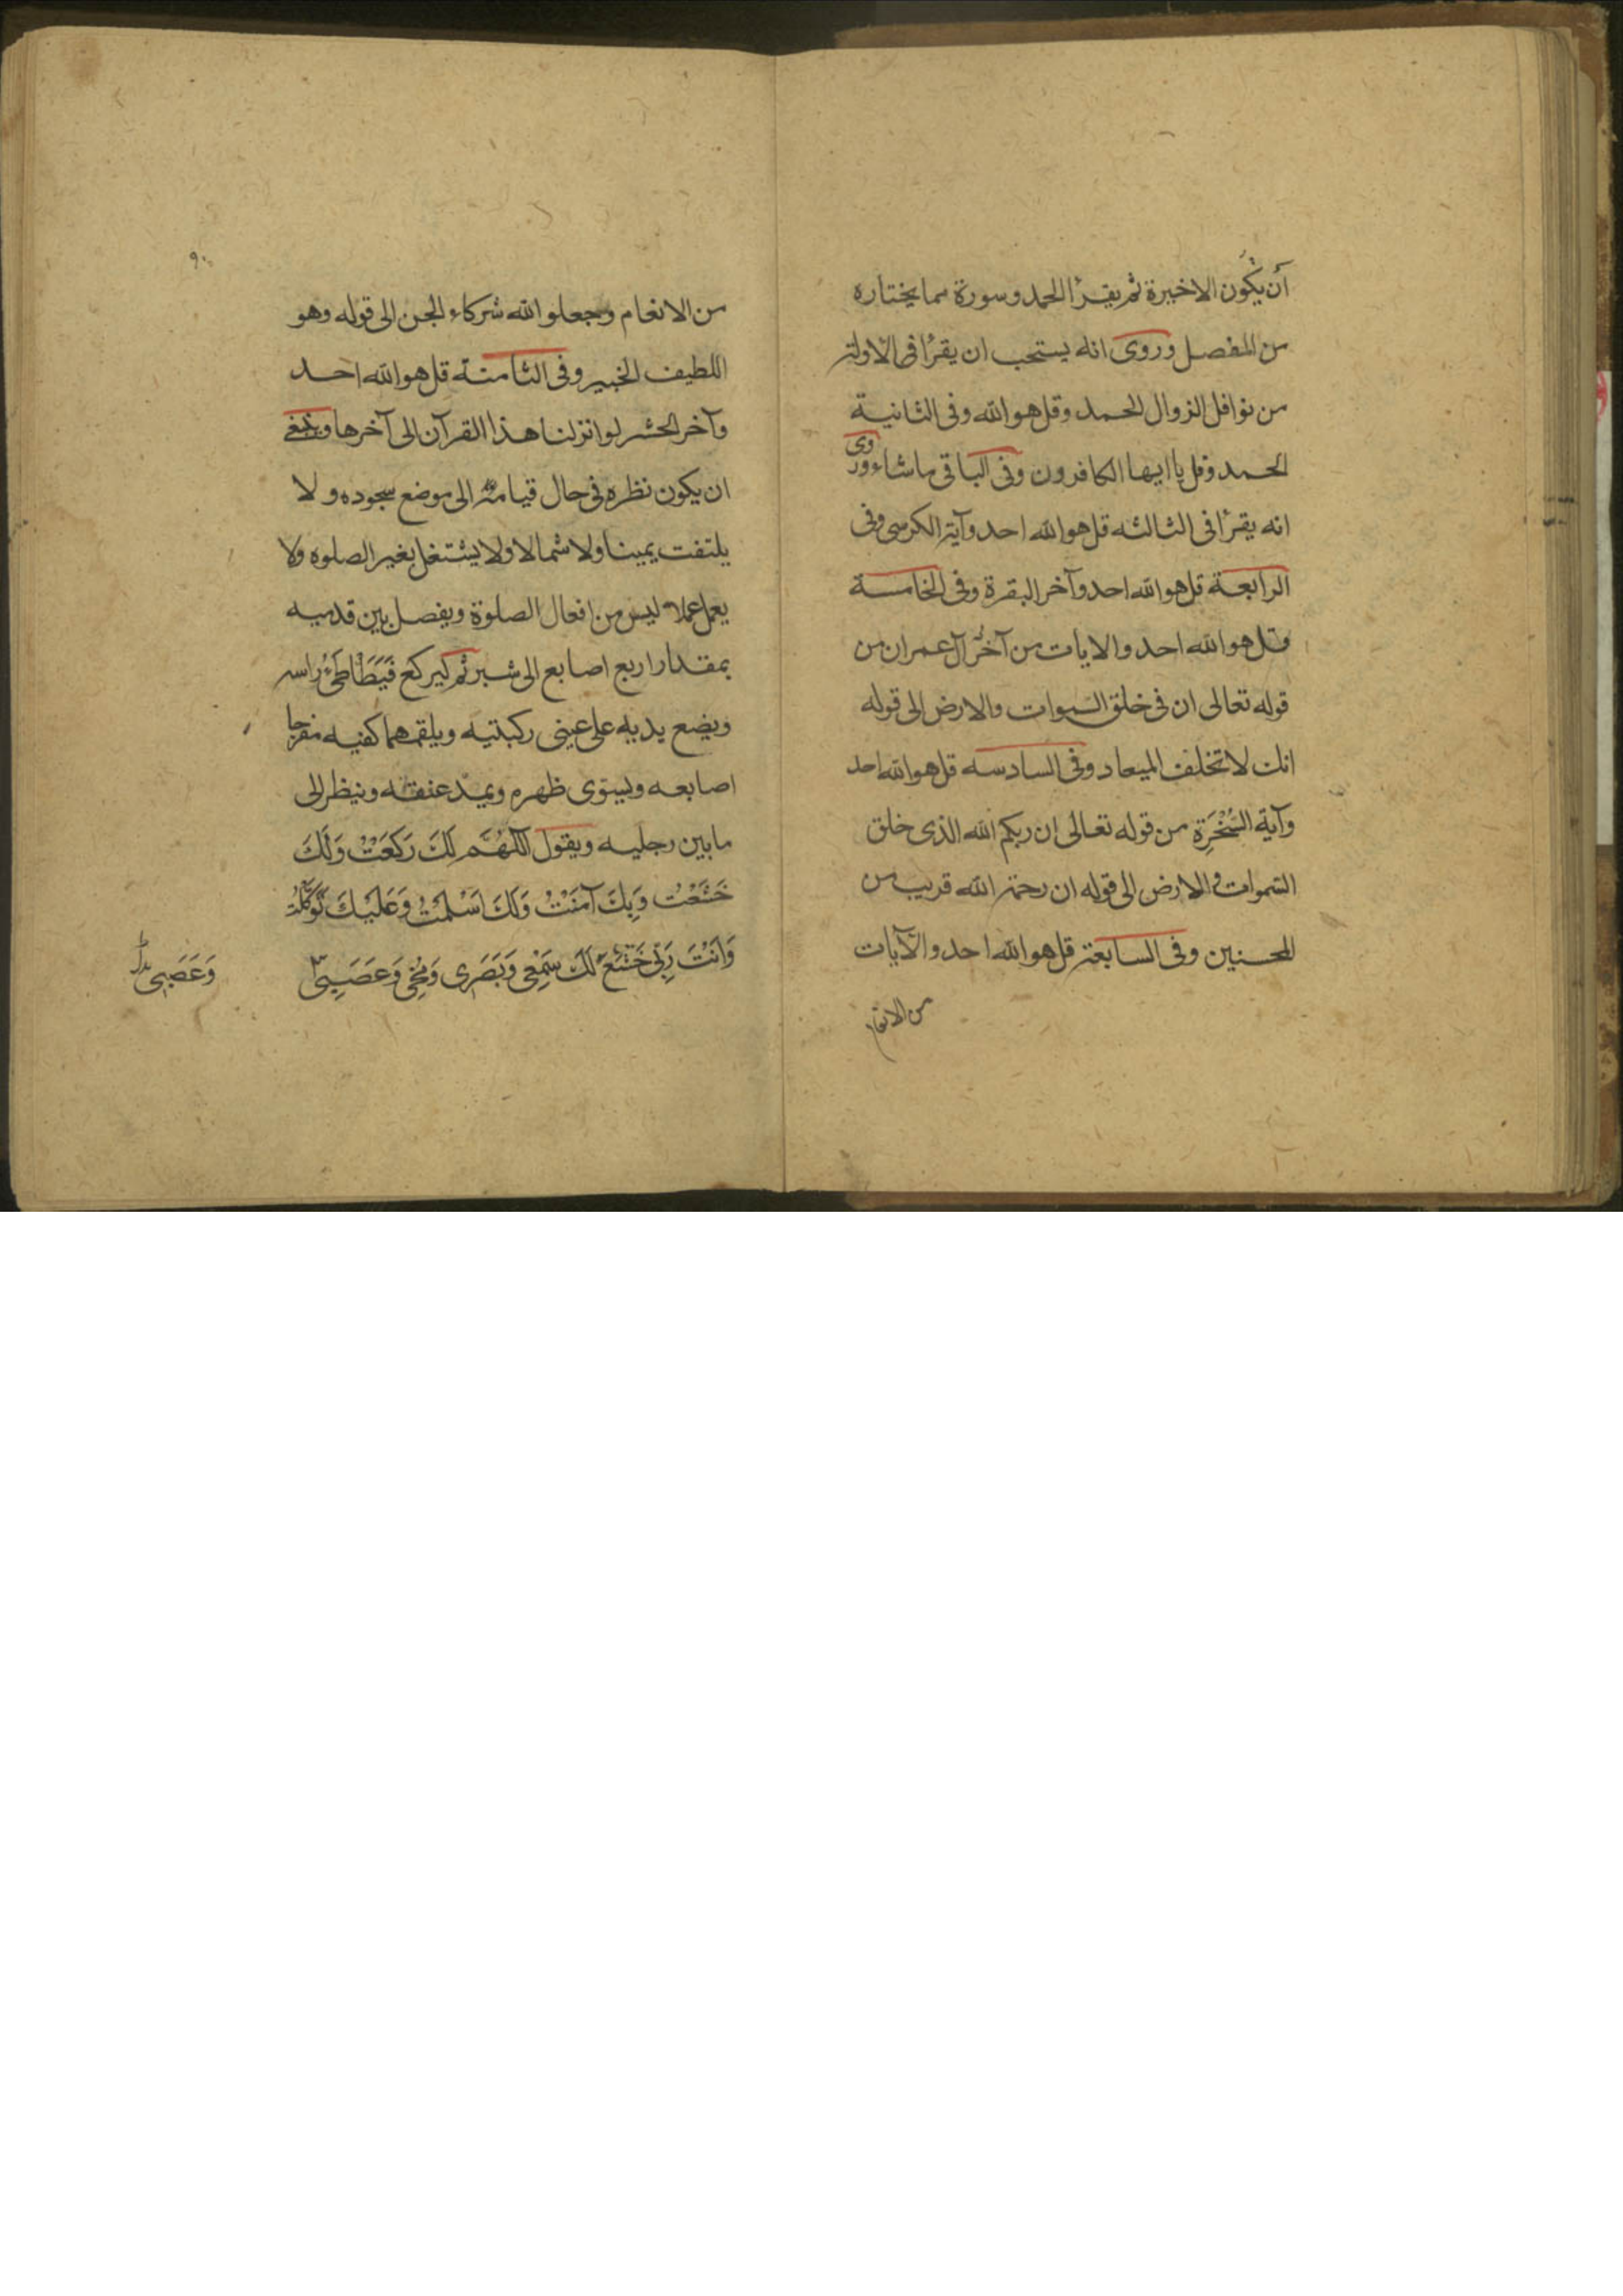 أن يَكُون الاخيرة ثم يقرأ الحمد وسورة مما يختاره
من المفصل وروى انه يستحب ان يقرأ فى الاولة
من نوافل الزوال الحمد وقل هو الله وفى الثانية
الحمد وقل يا ايها الكافرون وفى الباقى ما شاء وروى
انه يقرأ فى الثالثه قل هو الله احد وآية الكرسى وفى
الرابعة قل هو الله احد وآخر البقرة وفى الخامسة
قل هو الله احد والايات من آخر آل عمران من
قوله تعالى ان فى خلق السموات والارض الى قوله
انك لا تخلف الميعاد وفى السادسه قل هو الله احد
وآية السُّخْرَةِ من قوله تعالى ان ربكم الله الذى خلق
السموات والارض الى قوله ان رحمة الله قريب من
المحسنين وفى السابعة قل هو الله احد والآيات
من الانعام
٩٠
من الانعام وجعلوا لله شركاء الجن الى قوله وهو
اللطيف الخبير وفى الثامنة قل هو الله احد
وآخر الحشر لو انزلنا هذا القرآن الى آخرها وينبغى
ان يكون نظره فى حال قيامه الى موضع سجوده ولا
يلتفت يمينا ولا شمالا ولا يشتغل بغير الصلوه ولا
يعمل عملا ليس من افعال الصلوة ويفصل بين قدميه
بمقدار اربع اصابع الى شبر ثم يركع فَيَطَأْطِئُ راسه
ويضع يديه على عينى ركبتيه ويلقمهما كفيه مفرجا
اصابعه ويستوى ظهره ويمد عنقه وينظر الى
ما بين رجليه ويقول اَللّهُمَّ لَكَ رَكَعْتُ وَلَكَ
خَشَعْتُ وَبِكَ آمَنْتُ وَلَكَ اَسْلَمْتُ وَعَلَيْكَ تَوَكَّلْتُ
وَاَنْتَ رَبّى خَشَعَ لَكَ سَمْعِى وَبَصَرِى وَمُخّى وَعَصَبِى
وَعَصَبِى